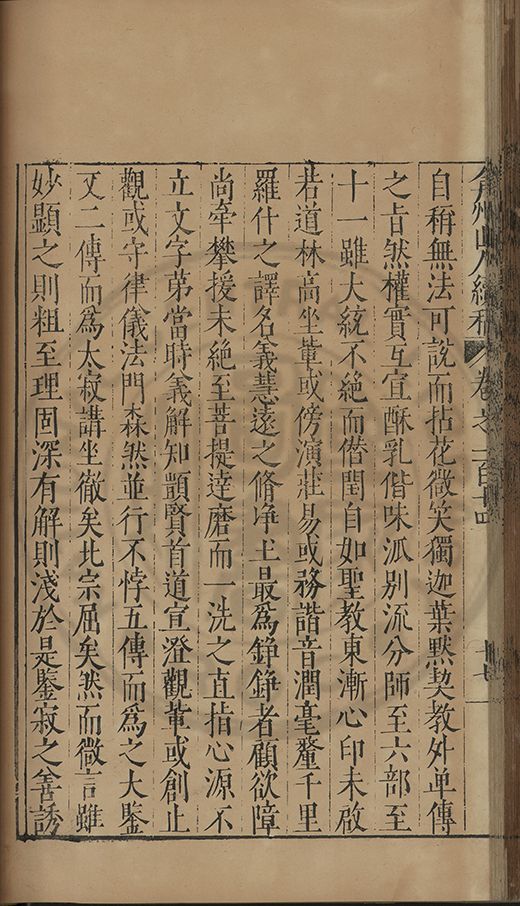 弇州山人續稿 卷之一百十四 十七
自稱無法可說而拈花微笑獨迦葉默契教外单傳
之旨然權實互宣酥乳偕味派別流分師至六部至
十一雖大統不絶而僣閏自如聖教東漸心印未啟
若道林高坐軰或傍演莊易或務諧音潤毫釐千里
羅什之譯名義慧遠之脩净土最爲錚錚者顧欲障
尚牽攀援未絶至菩提達磨而一洗之直指心源不
立文字苐當時義解知顗賢首道宣澄觀軰或創止
觀或守律儀法門森然並行不悖五傳而爲之大鑒
又二傳而爲大寂講坐徹矣北宗屈矣然而微言雖
妙顯之則粗至理固深有解則淺於是鑒寂之善誘